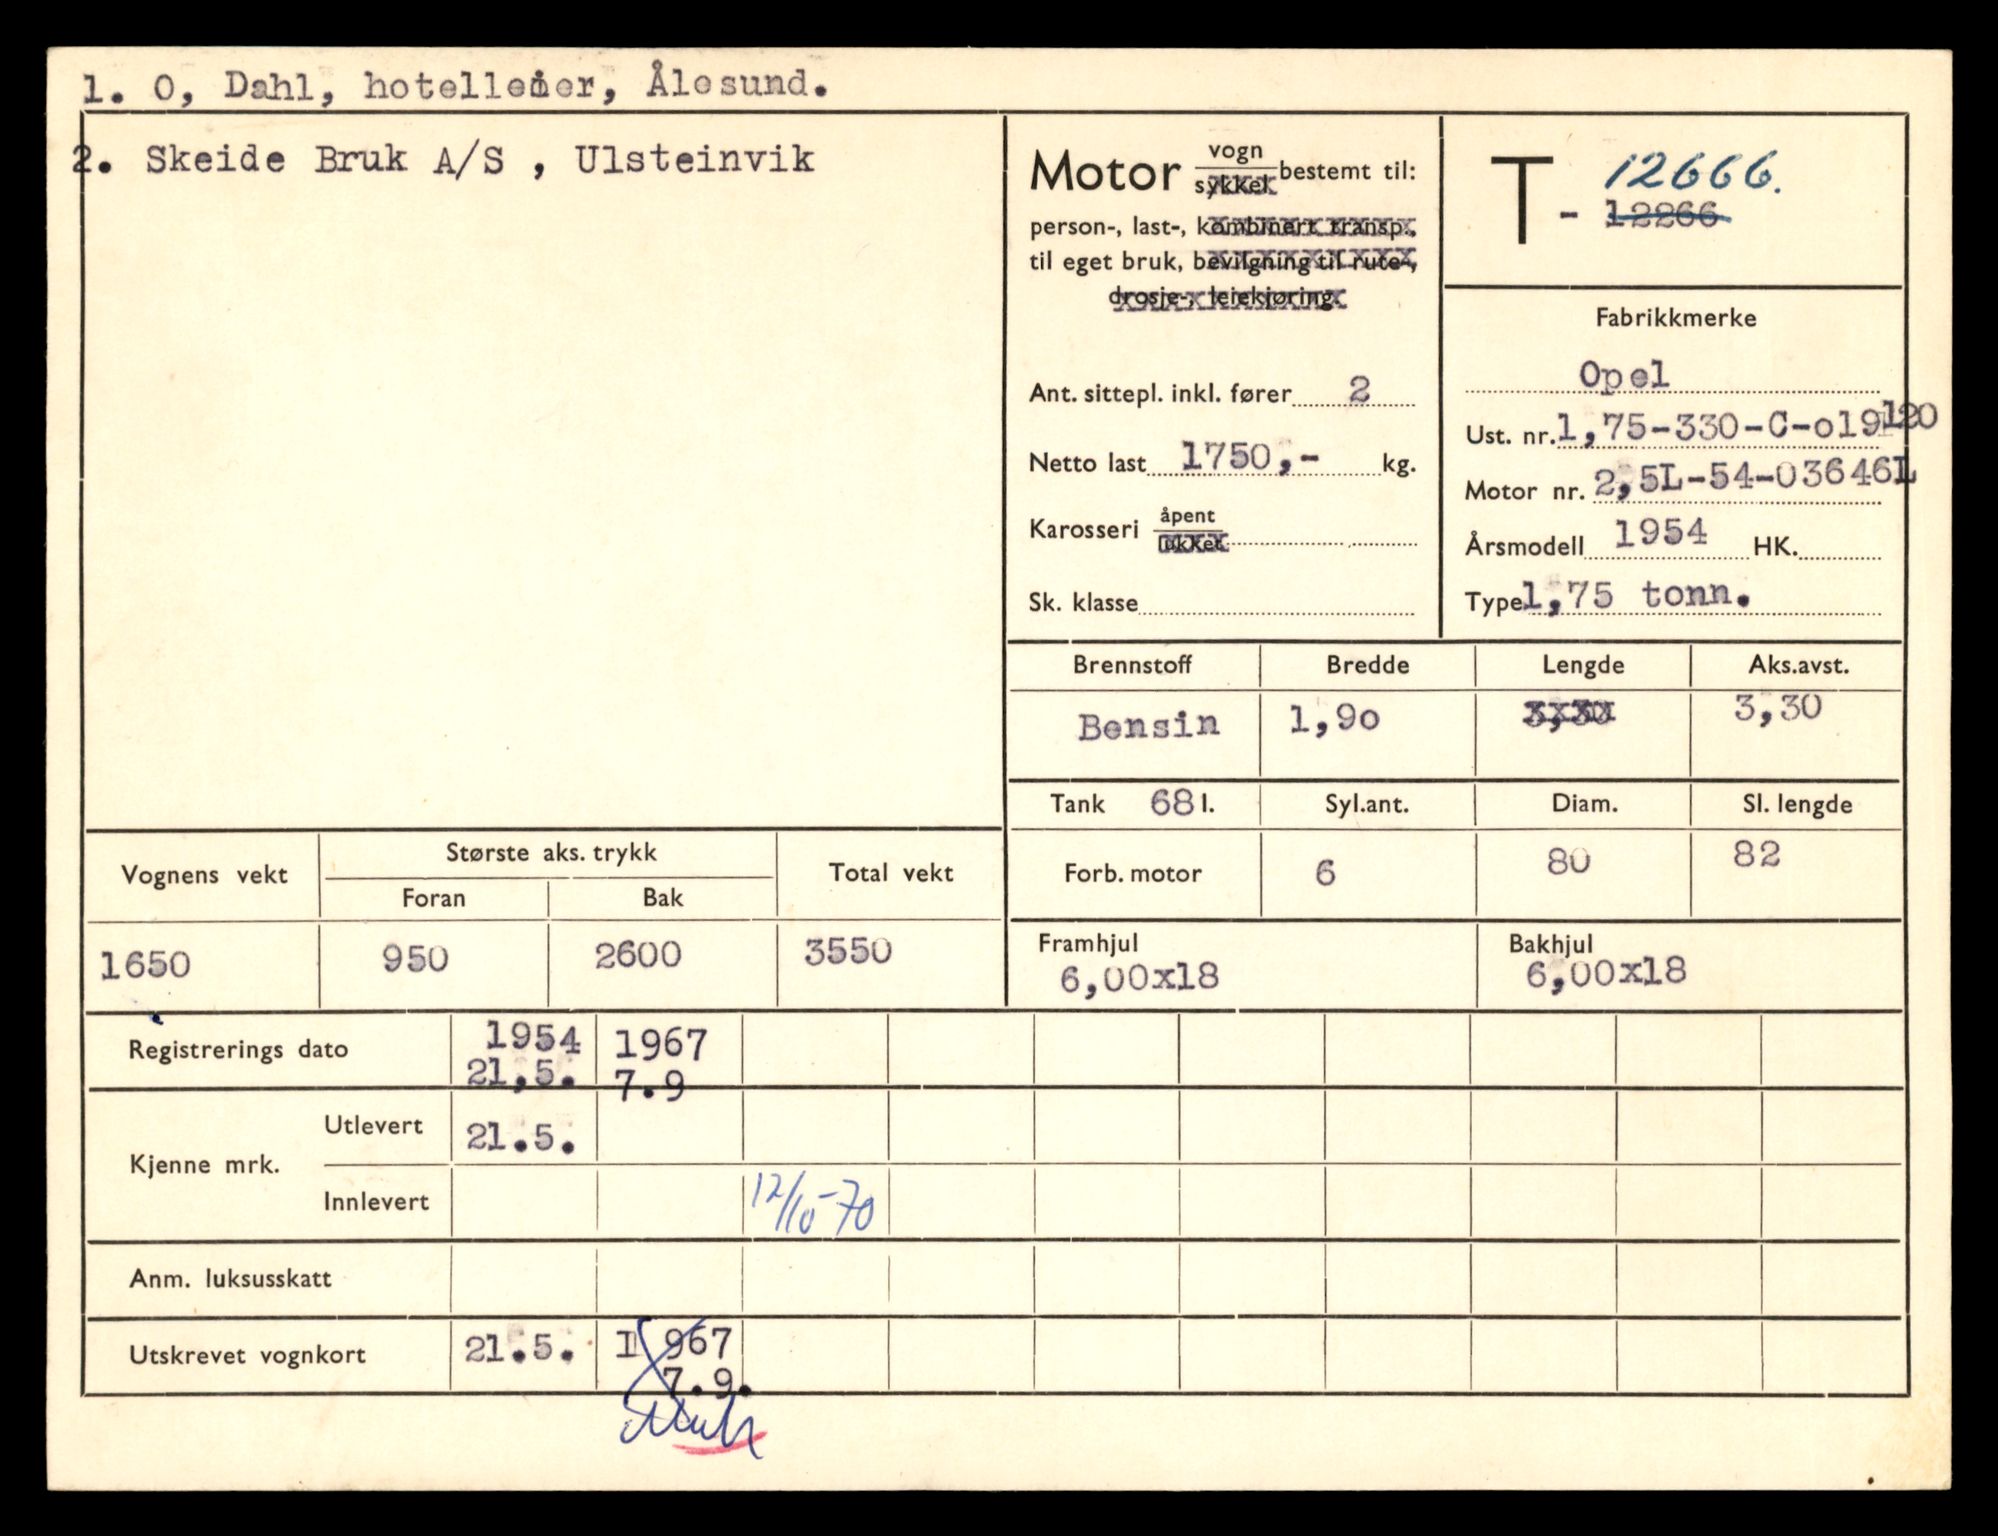 1. O, Dahl, hotelleier, Ålesund.
2. Skeide Bruk A/S , Ulsteinvik
Motor vogn
sykkel bestemt til:
person-, last-, kombinert transp.,
til eget bruk, bevilgning til rute-,
drosje-, leiekjøring.
Ant. sittepl. inkl. fører 2
Netto last 1750,- kg.
Karosseri åpent
lukket
Sk. klasse
T - 12666.
12266
Fabrikkmerke
Opel
Ust. nr. 1,75-330-C-o19120
Motor nr. 2,5L-54-03646L
Årsmodell 1954 HK.
Type 1,75 tonn.
Brennstoff Bredde Lengde Aks.avst.
Bensin 1,9o 3,30 3,30
Tank 68 l. Syl.ant. Diam. Sl. lengde
Forb. motor 6 80 82
Framhjul Bakhjul
6,00x18 6,00x18
Vognens vekt Største aks. trykk Total vekt
Foran Bak
1650 950 2600 3550
Registrerings dato 1954 1967
21,5. 7.9
Kjenne mrk. Utlevert 21.5.
Innlevert 12/10-70
Anm. luksusskatt
Utskrevet vognkort 21.5. I 967
7.9.